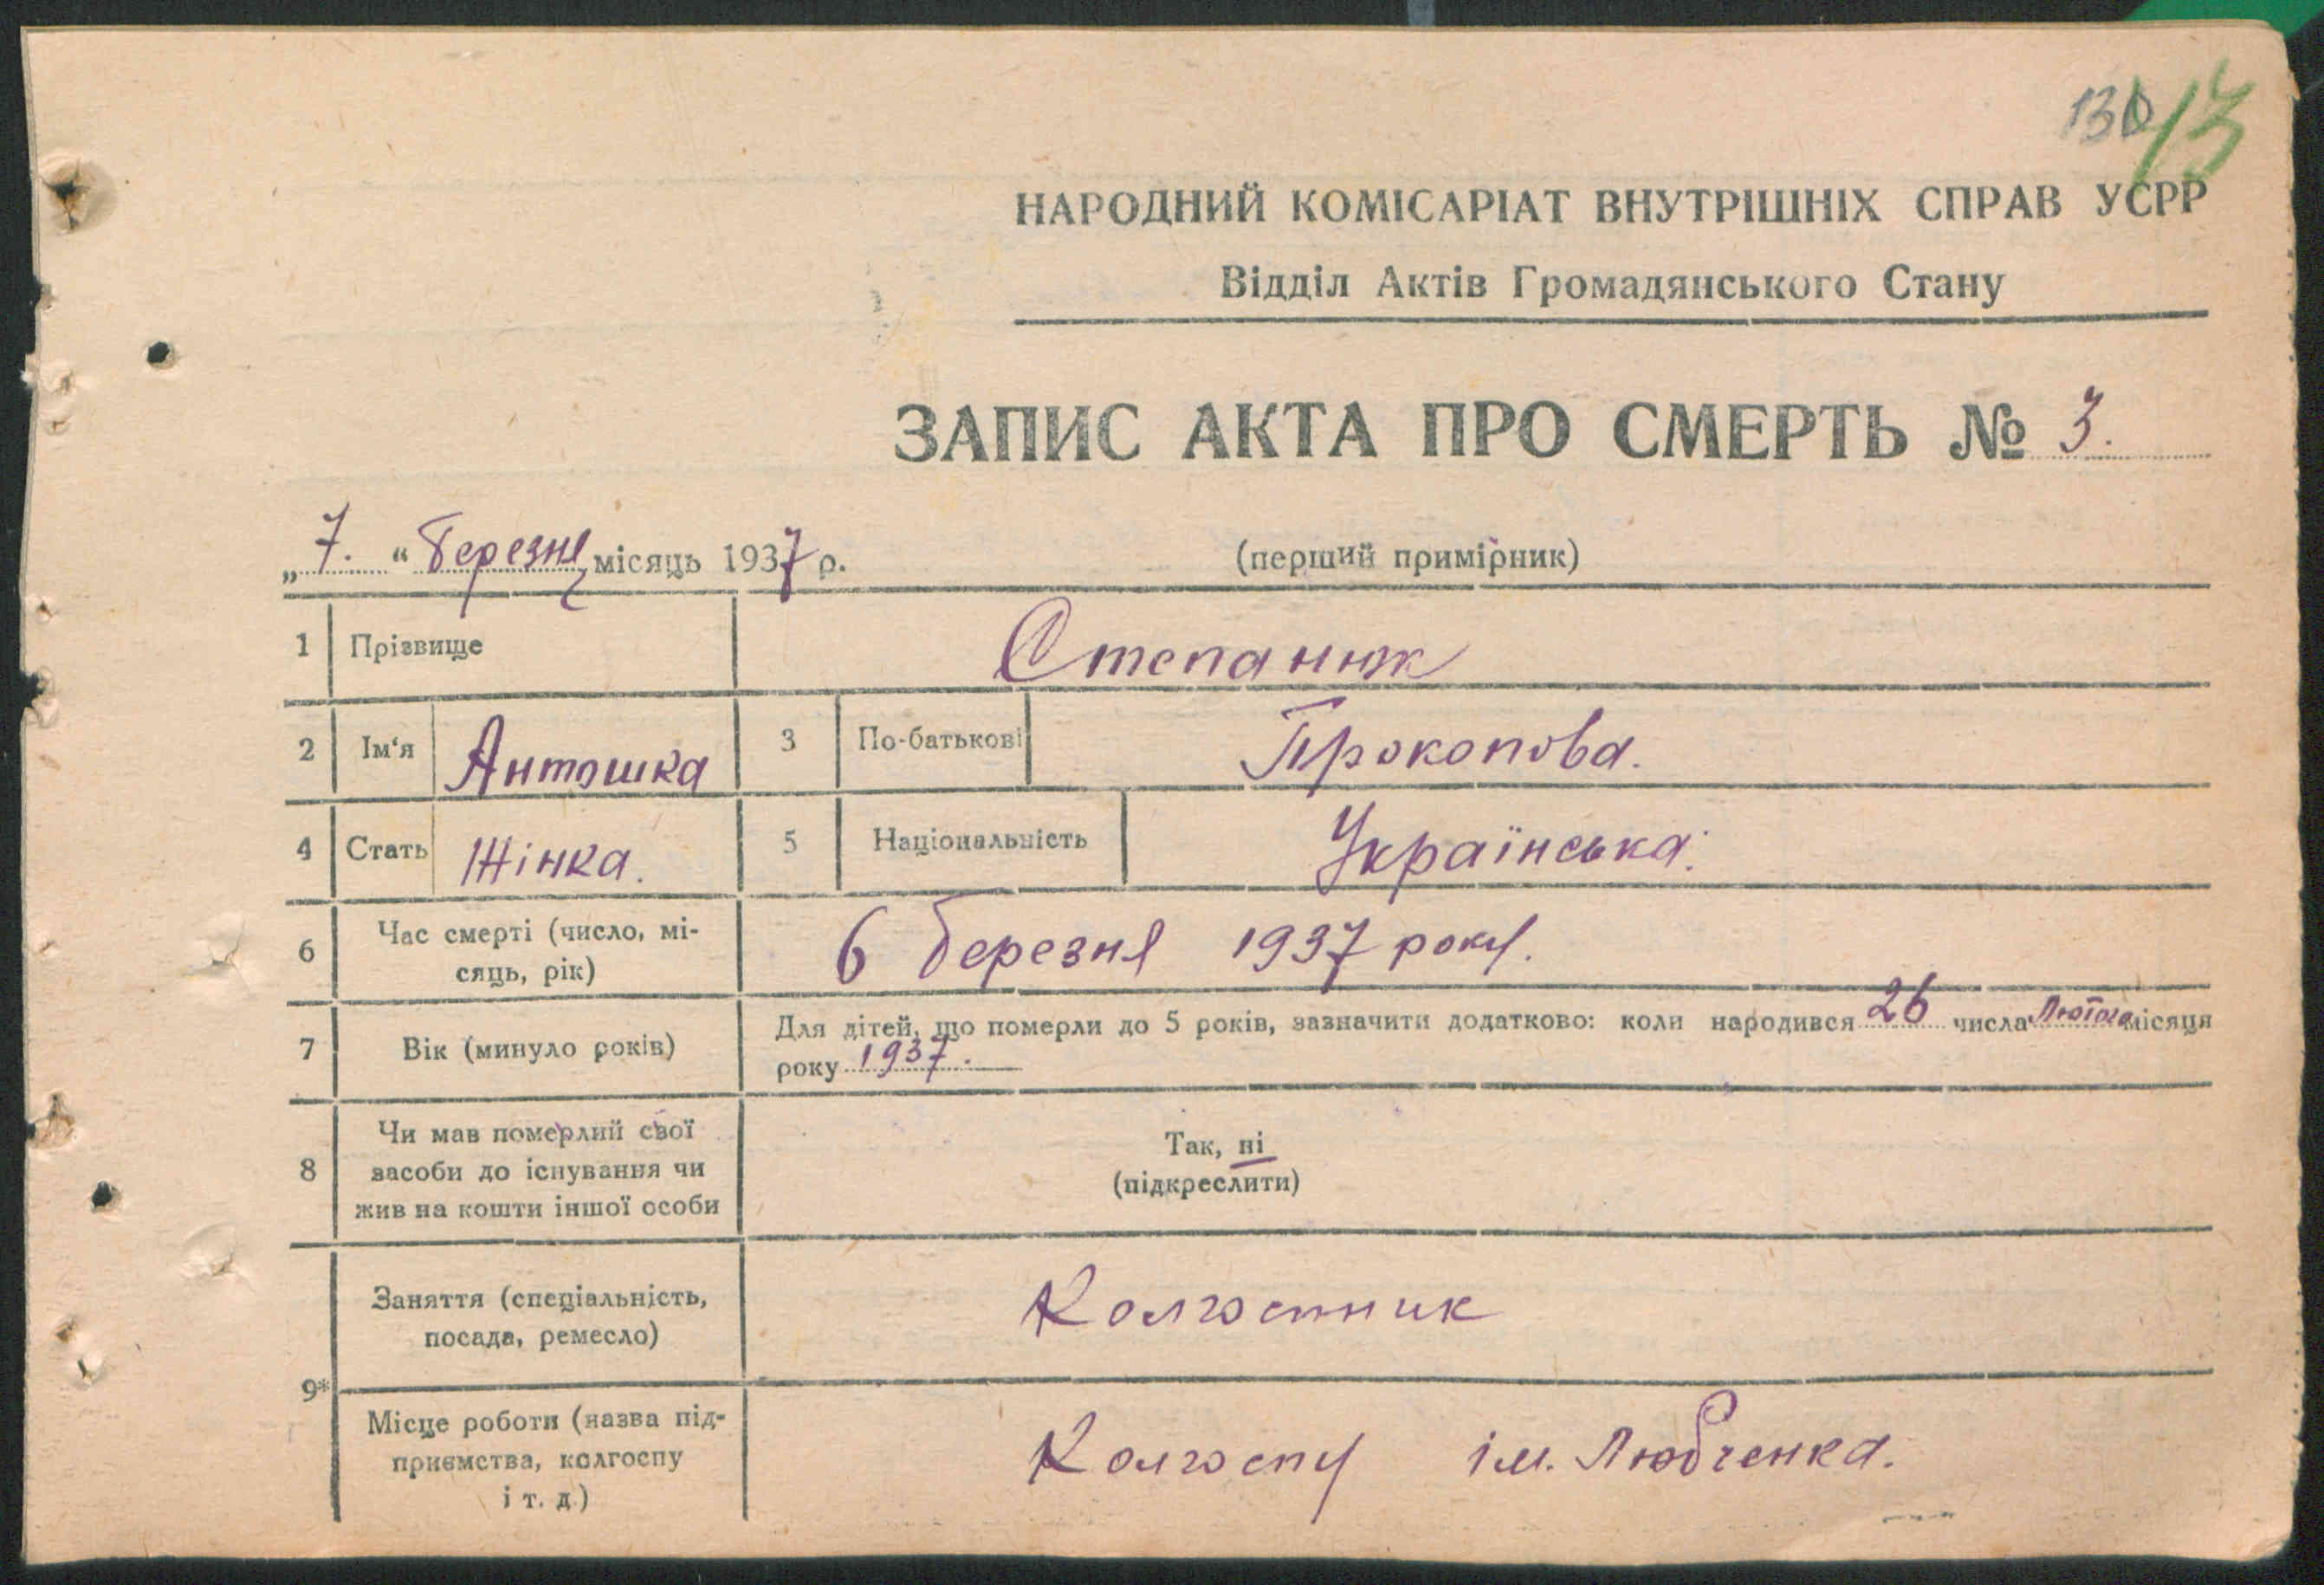 130 13
НАРОДНИЙ КОМІСАРІАТ ВНУТРІШНІХ СПРАВ УСРР
Відділ Актів Громадянського Стану
ЗАПИС АКТА ПРО СМЕРТЬ № 3.
„ 7. “ березня місяць 1937 р.
(перший примірник)
1 Прізвище Степанюк
2 Ім‘я Антошка 3 По-батькові Прокопова.
4 Стать Жінка. 5 Національність Українська.
6 Час смерті (число, мі-
сяць, рік) 6 березня 1937 року.
7 Вік (минуло років) Для дітей, що померли до 5 років, зазначити додатково: коли народився 26 числа Лютого місяця
року 1937.
8 Чи мав померлий свої
засоби до існування чи
жив на кошти іншої особи
Так, ні
(підкреслити)
9* Заняття (спеціальність,
посада, ремесло) Колгоспник
Місце роботи (назва під-
приємства, колгоспу
і т. д.) Колгоспу ім. Любченка.